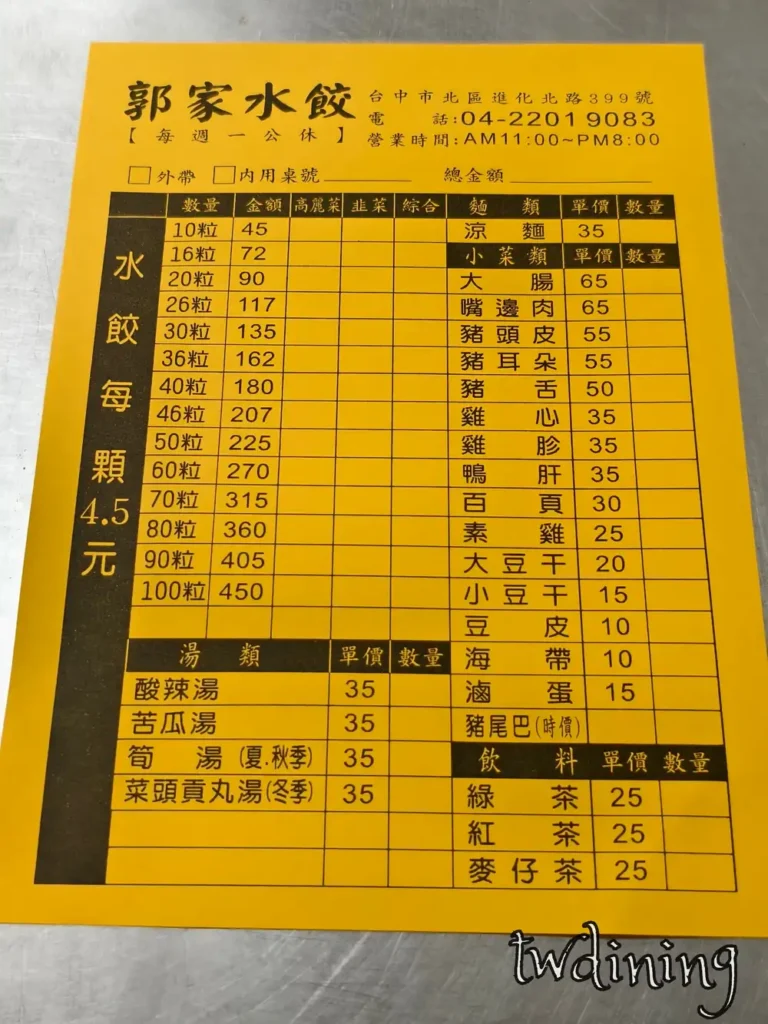 郭家水餃
【每週一公休】
台中市北區進化北路399號
電話:04-2201 9083
營業時間:AM11:00~PM8:00
□外帶 □內用桌號 總金額
水餃每顆4.5元
數量 金額 高麗菜 韭菜 綜合
10粒 45
16粒 72
20粒 90
26粒 117
30粒 135
36粒 162
40粒 180
46粒 207
50粒 225
60粒 270
70粒 315
80粒 360
90粒 405
100粒 450
湯類 單價 數量
酸辣湯 35
苦瓜湯 35
筍湯(夏.秋季) 35
菜頭貢丸湯(冬季) 35
麵類 單價 數量
涼麵 35
小菜類 單價 數量
大腸 65
嘴邊肉 65
豬頭皮 55
豬耳朵 55
豬舌 50
雞心 35
雞胗 35
鴨肝 35
百頁 30
素雞 25
大豆干 20
小豆干 15
豆皮 10
海帶 10
滷蛋 15
豬尾巴(時價)
飲料 單價 數量
綠茶 25
紅茶 25
麥仔茶 25
twdining